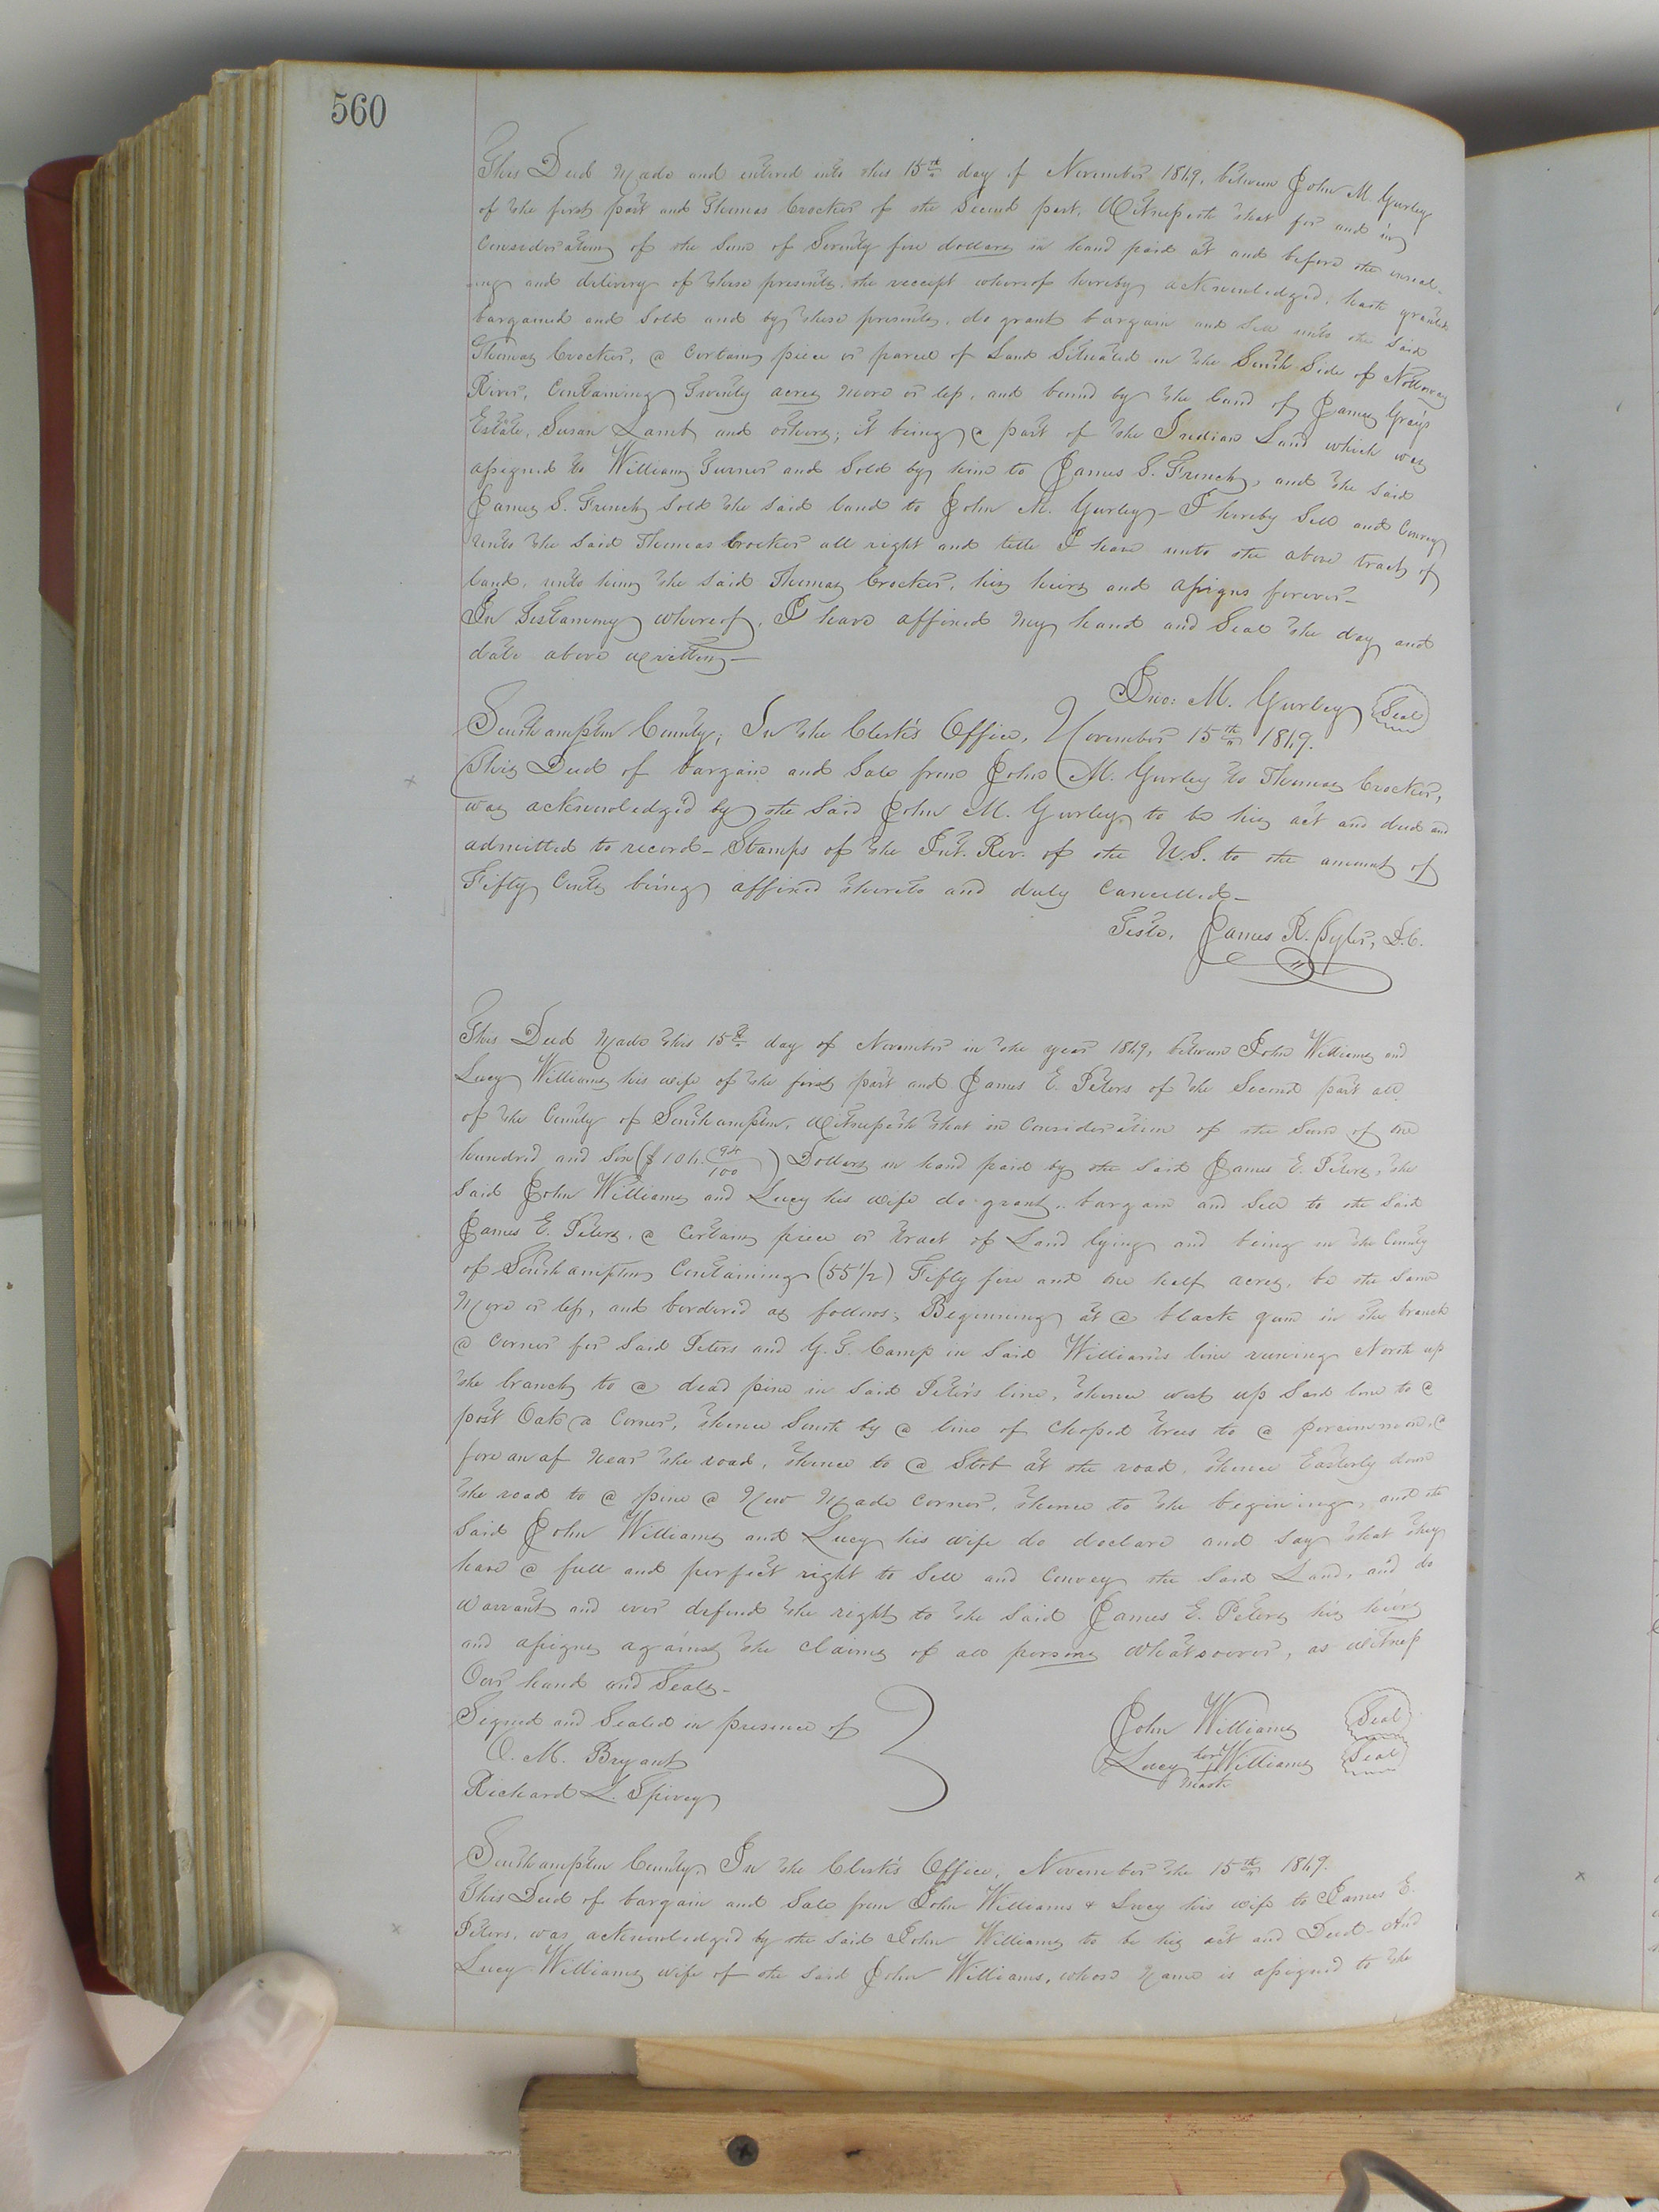 560
This Deed Made and entered into this 15th day of November 1869, between John M. Gurley
of the first part and Thomas Crocker of the Second part, Witnesseth that for and in
Consideration of the Sum of Seventy five dollars in hand paid at and before the enseal-
ing and delivery of these presents, the receipt whereof hereby acknowledged, hath granted
bargained and Sold and by these presents, do grant bargain and Sell unto the Said
Thomas Crocker, a Certain piece or parcel of Land Situated in the South Side of Nottoway
River, Containing Twenty acres more or less, and bound by the land of James Gray's
Estate, Susan Lamb and others; it being a part of the Indian Land which was
assigned to William Turner and Sold by him to James S. French, and the Said
James S. French Sold the Said land to John M. Gurley - I hereby Sell and Convey
unto the Said Thomas Crocker all right and title I have unto the above tract of
land, unto him the Said Thomas Crocker, his heirs and assigns forever -
In Testamony whereof, I have affixed my hand and Seal the day and
date above written -
Jno: M. Gurley Seal
Southampton County; In the Clerk's Office, November 15th 1869.
This Deed of bargain and Sale from John M. Gurley to Thomas Crocker,
was acknowledged by the Said John M. Gurley to be his act and deed and
admitted to record - Stamps of the Int. Rev. of the U.S. to the amount of
Fifty Cents being affixed thereto and duly Cancelled -
Teste, James R. Tyler, D.C.
This Deed Made this 15th day of November in the year 1869, between John Williams and
Lucy Williams his wife of the first part and James E. Peters of the Second part all
of the County of Southampton, Witnesseth that in Consideration of the Sum of One
hundred and Six ($106. 94/100) Dollars in hand paid by the Said James E. Peters, the
Said John Williams and Lucy his wife do grant, bargain and Sell to the Said
James E. Peters, a Certain piece or tract of Land lying and being in the County
of Southampton Containing (55 1/2) Fifty five and one half acres, be the Same
More or less, and bordered as follows; Beginning at a black gum in the branch
a Corner for Said Peters and G. T. Camp in Said Williams line running North up
the branch to a dead pine in Said Peter's line, thence west up Said line to a
post Oak a Corner, thence South by a line of Choped trees to a percimmon, a
fore an af Near the road, thence to a Stob at the road, thence Easterly down
the road to a pine a New Made Corner, thence to the begining, and the
Said John Williams and Lucy his wife do declare and Say that they
have a full and perfect right to Sell and Convey the Said Land, and do
Warrant and ever defend the right to the Said James E. Peters his heirs
and assigns against the claims of all persons Whatsoever, as witness
Our hand and Seals -
Signed and Sealed in presence of
O. M. Bryant
Richard L. Spivey
John Williams Seal
Lucy her + mark Williams Seal
Southampton County, In the Clerk's Office, November the 15th 1869.
This Deed of bargain and Sale from John Williams & Lucy his wife to James E.
Peters, was acknowledged by the Said John Williams to be his act and Deed - And
Lucy Williams wife of the Said John Williams, whose Name is assigned to the